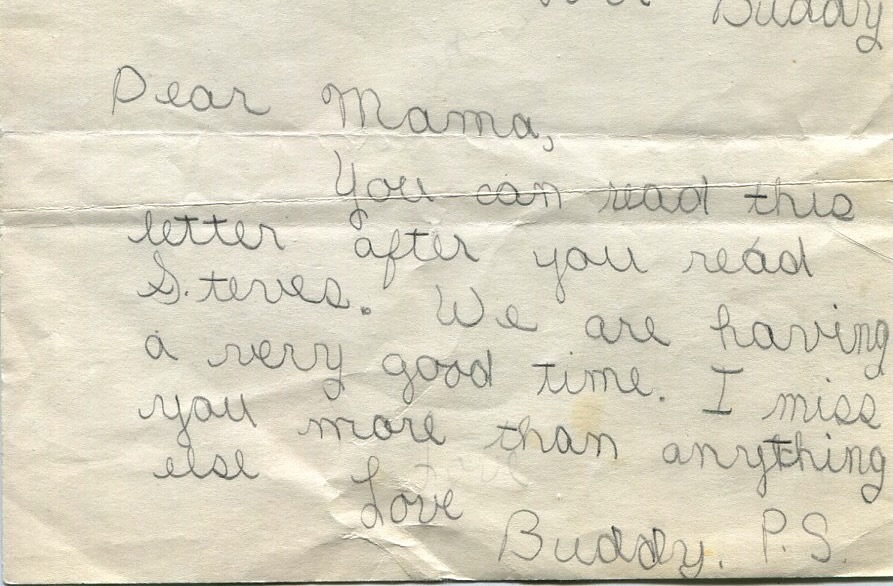 Buddy
Dear Mama,
You can read this
letter after you read
S.teves. We are having
a very good time. I miss
you more than anything
else
Love
Buddy. P.S.